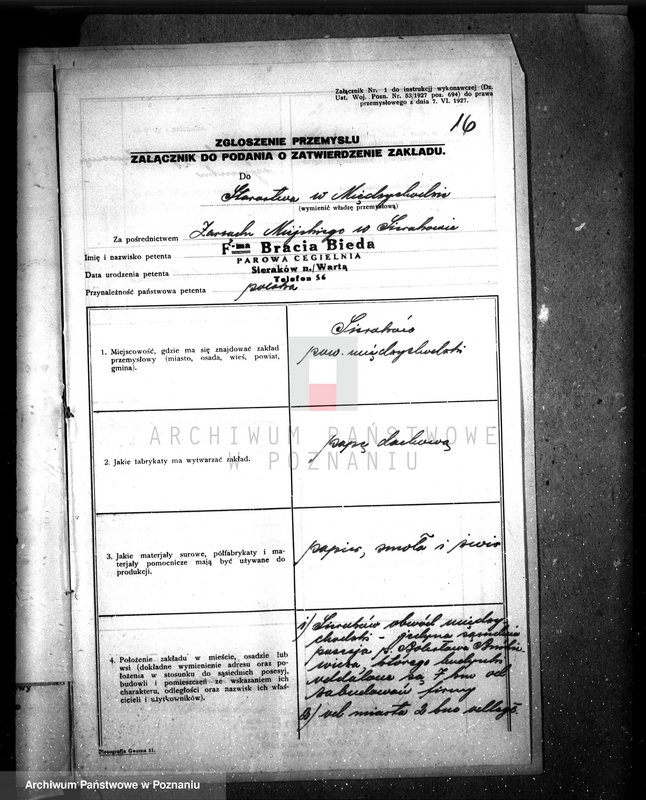 Załącznik Nr. 1 do instrukcji wykonawczej (Dz.
Ust. Woj. Pozn. Nr. 53/1927 poz. 694) do prawa
przemysłowego z dnia 7. VI. 1927.
16
ZGŁOSZENIE PRZEMYSŁU
ZAŁĄCZNIK DO PODANIA O ZATWIERDZENIE ZAKŁADU.
Do
Starostwa w Międzychodzie
(wymienić władzę przemysłową)
Za pośrednictwem Zarządu Miejskiego w Sierakowie
Imię i nazwisko petenta F-ma Bracia Bieda
PAROWA CEGIELNIA
Data urodzenia petenta Sieraków n./Wartą
Telefon 56
Przynależność państwowa petenta polska
1. Miejscowość, gdzie ma się znajdować zakład
przemysłowy (miasto, osada, wieś, powiat,
gmina).
Sieraków
pow. międzychodzki
2. Jakie fabrykaty ma wytwarzać zakład.
papę dachową
3. Jakie materjały surowe, półfabrykaty i ma-
terjały pomocnicze mają być używane do
produkcji.
papier, smoła i
4. Położenie zakładu w mieście, osadzie lub
wsi (dokładne wymienienie adresu oraz po-
łożenia w stosunku do sąsiednich posesyj,
budowli i pomieszczeń ze wskazaniem ich
charakteru, odległości oraz nazwisk ich właś-
cicieli i użytkowników).
1) Sieraków obwód między-
chodzki - jedyna sąsiednia
posesja p. Bolesława
którego budynki
oddalone są 1 km od
zabudowań firmy
2) od miasta 2 km odległ.
Drukografia Gwarna 11.
ARCHIWUM PAŃSTWOWE
W POZNANIU
Archiwum Państwowe w Poznaniu